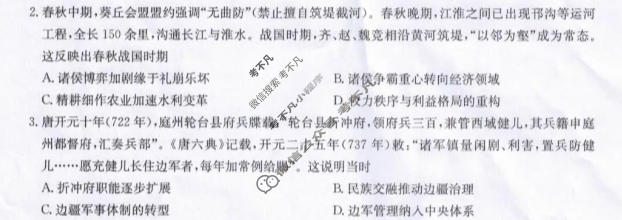 2. 春秋中期，葵丘会盟盟约强调“无曲防”（禁止擅自筑堤截河）。春秋晚期，江淮之间已出现邗沟等运河
工程，全长 150 余里，沟通长江与淮水。战国时期，齐、赵、魏竞相沿黄河筑堤，“以邻为壑”成为常态。
这反映出春秋战国时期
A. 诸侯博弈加剧缘于礼崩乐坏 B. 诸侯争霸重心转向经济领域
C. 精耕细作农业加速水利变革 D. 权力秩序与利益格局的重构
3. 唐开元十年（722 年），庭州轮台县府兵牒载“轮台县 冲府，领府兵三百，兼管西域健儿，其兵籍申庭
州都督府，汇奏兵部”。《唐六典》记载，开元二十五年（737 年）敕：“诸军镇量闲剧、利害，置兵防健
儿……愿充健儿长住边军者，每年加常例给 ”。这说明当时
A. 折冲府职能逐步扩展 B. 民族交融推动边疆治理
C. 边疆军事体制的转型 D. 边军管理纳入中央体系
考不凡
微信搜索考不凡
考不凡小程序
微信公众号考不凡